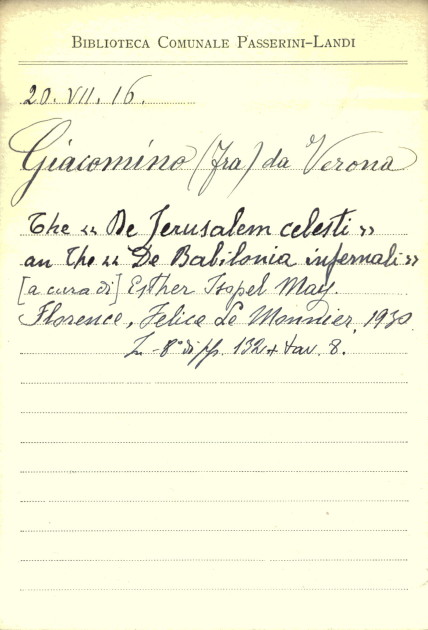 BIBLIOTECA COMUNALE PASSERINI-LANDI
20. VII. 16.
Giacomino (Fra) da Verona
The « De Jerusalem celesti »
an The « De Babilonia infernali »
[a cura di] Esther Isopel May.
Florence, Felice Le Monnier, 1930
in-8° di pp. 132 + tav. 8.